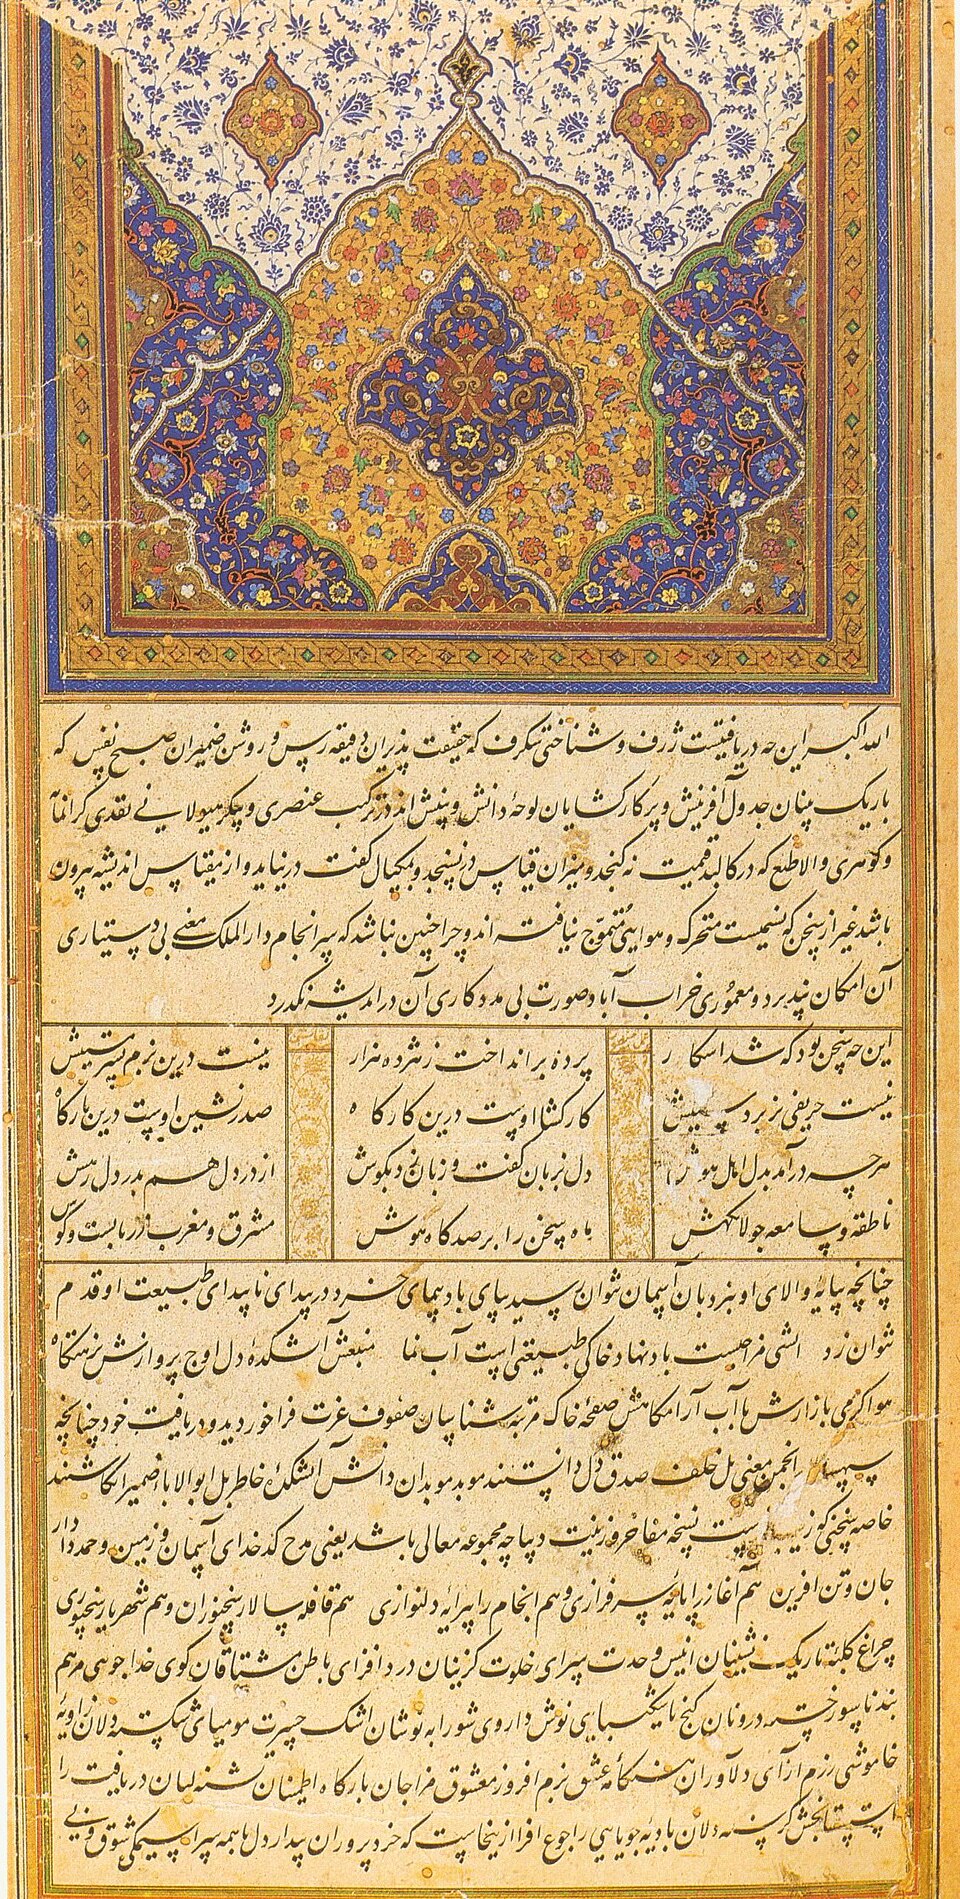 الله اکبر این چه دریافتیست ژرف و شناختی شگرف که حقیقت پذیران دقیقه رس و روشن ضمیران صبح نفس که
باریک بینان جدول آفرینش و پرکار کشایان لوحهٔ دانش و بینش اند در ترکیب عنصری و پیکر هیولایی نقدی گرانمایه
و گوهری والا طلع که در کالبد قیمت نه گنجد و میزان قیاس در نسنجد و بمکیال گفت در نیاید و از مقیاس اندیشه بیرون
باشد غیر از سخن که نسیمیست متحرک و هوایی متموّج نیافته اند و چرا چنین نباشد که سرانجام دار الملک معنی بی دستیاری
آن امکان نپذیرد و معموری خراب آباد صورت بی مددکاری آن در اندیشه نگذرد
این چه سخن بود که شد اسکار پرده برانداخت ز هژده هزار نیست درین بزم بسر مستیش
نیست حریفی نزبردستیش کارکشا اوست درین کارگاه صدر نشین اوست درین بارگاه
هرچه در آمد بدل اهل هوش دل بزبان گفت و زبان زد بگوش از در دل هم بدر دل رهش
ناطقه و سامعه جولانگهش باه سخن را برصدگاه هوش مشرق و مغرب ز زبانست و گوش
چنانچه بپایهٔ والای او بنردبان آسمان نتوان رسید بپای بادپیمای خرد در بیدای ناپیدای طبیعت او قدم
نتوان زد آتشی مزاجیست باد نهاد خاکی طبیعتی است آب نما منبعش آتشکدهٔ دل اوج پروازش نزهتگاه
هوا گرمی بازارش با آب آرامگاهش صفحهٔ خاک مرتبه شناسان صفوف عزت فراخور دید و دریافت خود چنانچه
سپهسالار انجمن معنی بل خلف صدق دل دانستند موبد موبدان دانش آتشکدهٔ خاطر بل ابو الابا ضمیر انگاشتند
خاصه سخنی که زیب است نسخهٔ مفاخر و زینت دیباچهٔ مجموعهٔ معالی باشد یعنی مدح کدخدای آسمان و زمین و حمد دادار
جان و تن آفرین هم آغاز را پایهٔ سرفرازی و هم انجام را پیرایهٔ دلنوازی هم قافله سالار سخنوران و هم شهریار سخنوری
چراغ کلبهٔ تاریک نشینان انیس وحدت سرای خلوت گزینان درد افزای باطن مشتاقان کوی خداجوهی مرهم
بند ناسور خسته درونان کنج ناشکیبایی نوش داروی شورابه نوشان اشک حسرت مومیای شکسته دلان زاویهٔ
خاموشی رزم آرای دلاوران هنگامهٔ عشق بزم افروز معشوق مزاجان بارگاه اطمینان تشنه لبان دریافت را
استسقا بخش گرسنه دلان بادیهٔ جویایی را جوع افزا ازینجاست که خرد پروران بیدار دل با همه سراسیمگی شوق و بی